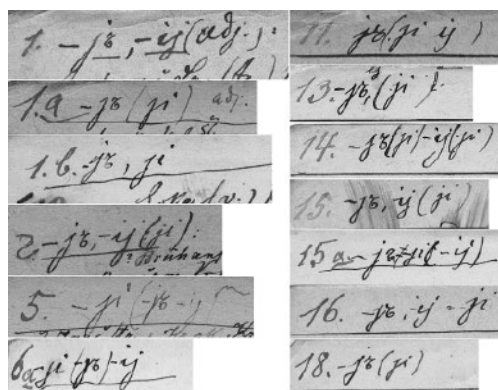 1. -jъ, -ij (adj.):
1.a -jъ (ji) adj.
1.b. -jъ, ji
2. -jъ, -ij (ji):
5. -ji (-jъ -ij
6a -ji (-jъ) -ij
11. jъ (ji ij)
13. -jъ, (ji)
14. -jъ (ji) -ij (ji)
15. -jъ, ij (ji)
15a - jъ ji (-ij)
16. -jъ, ij - ji
18. -jъ (ji)